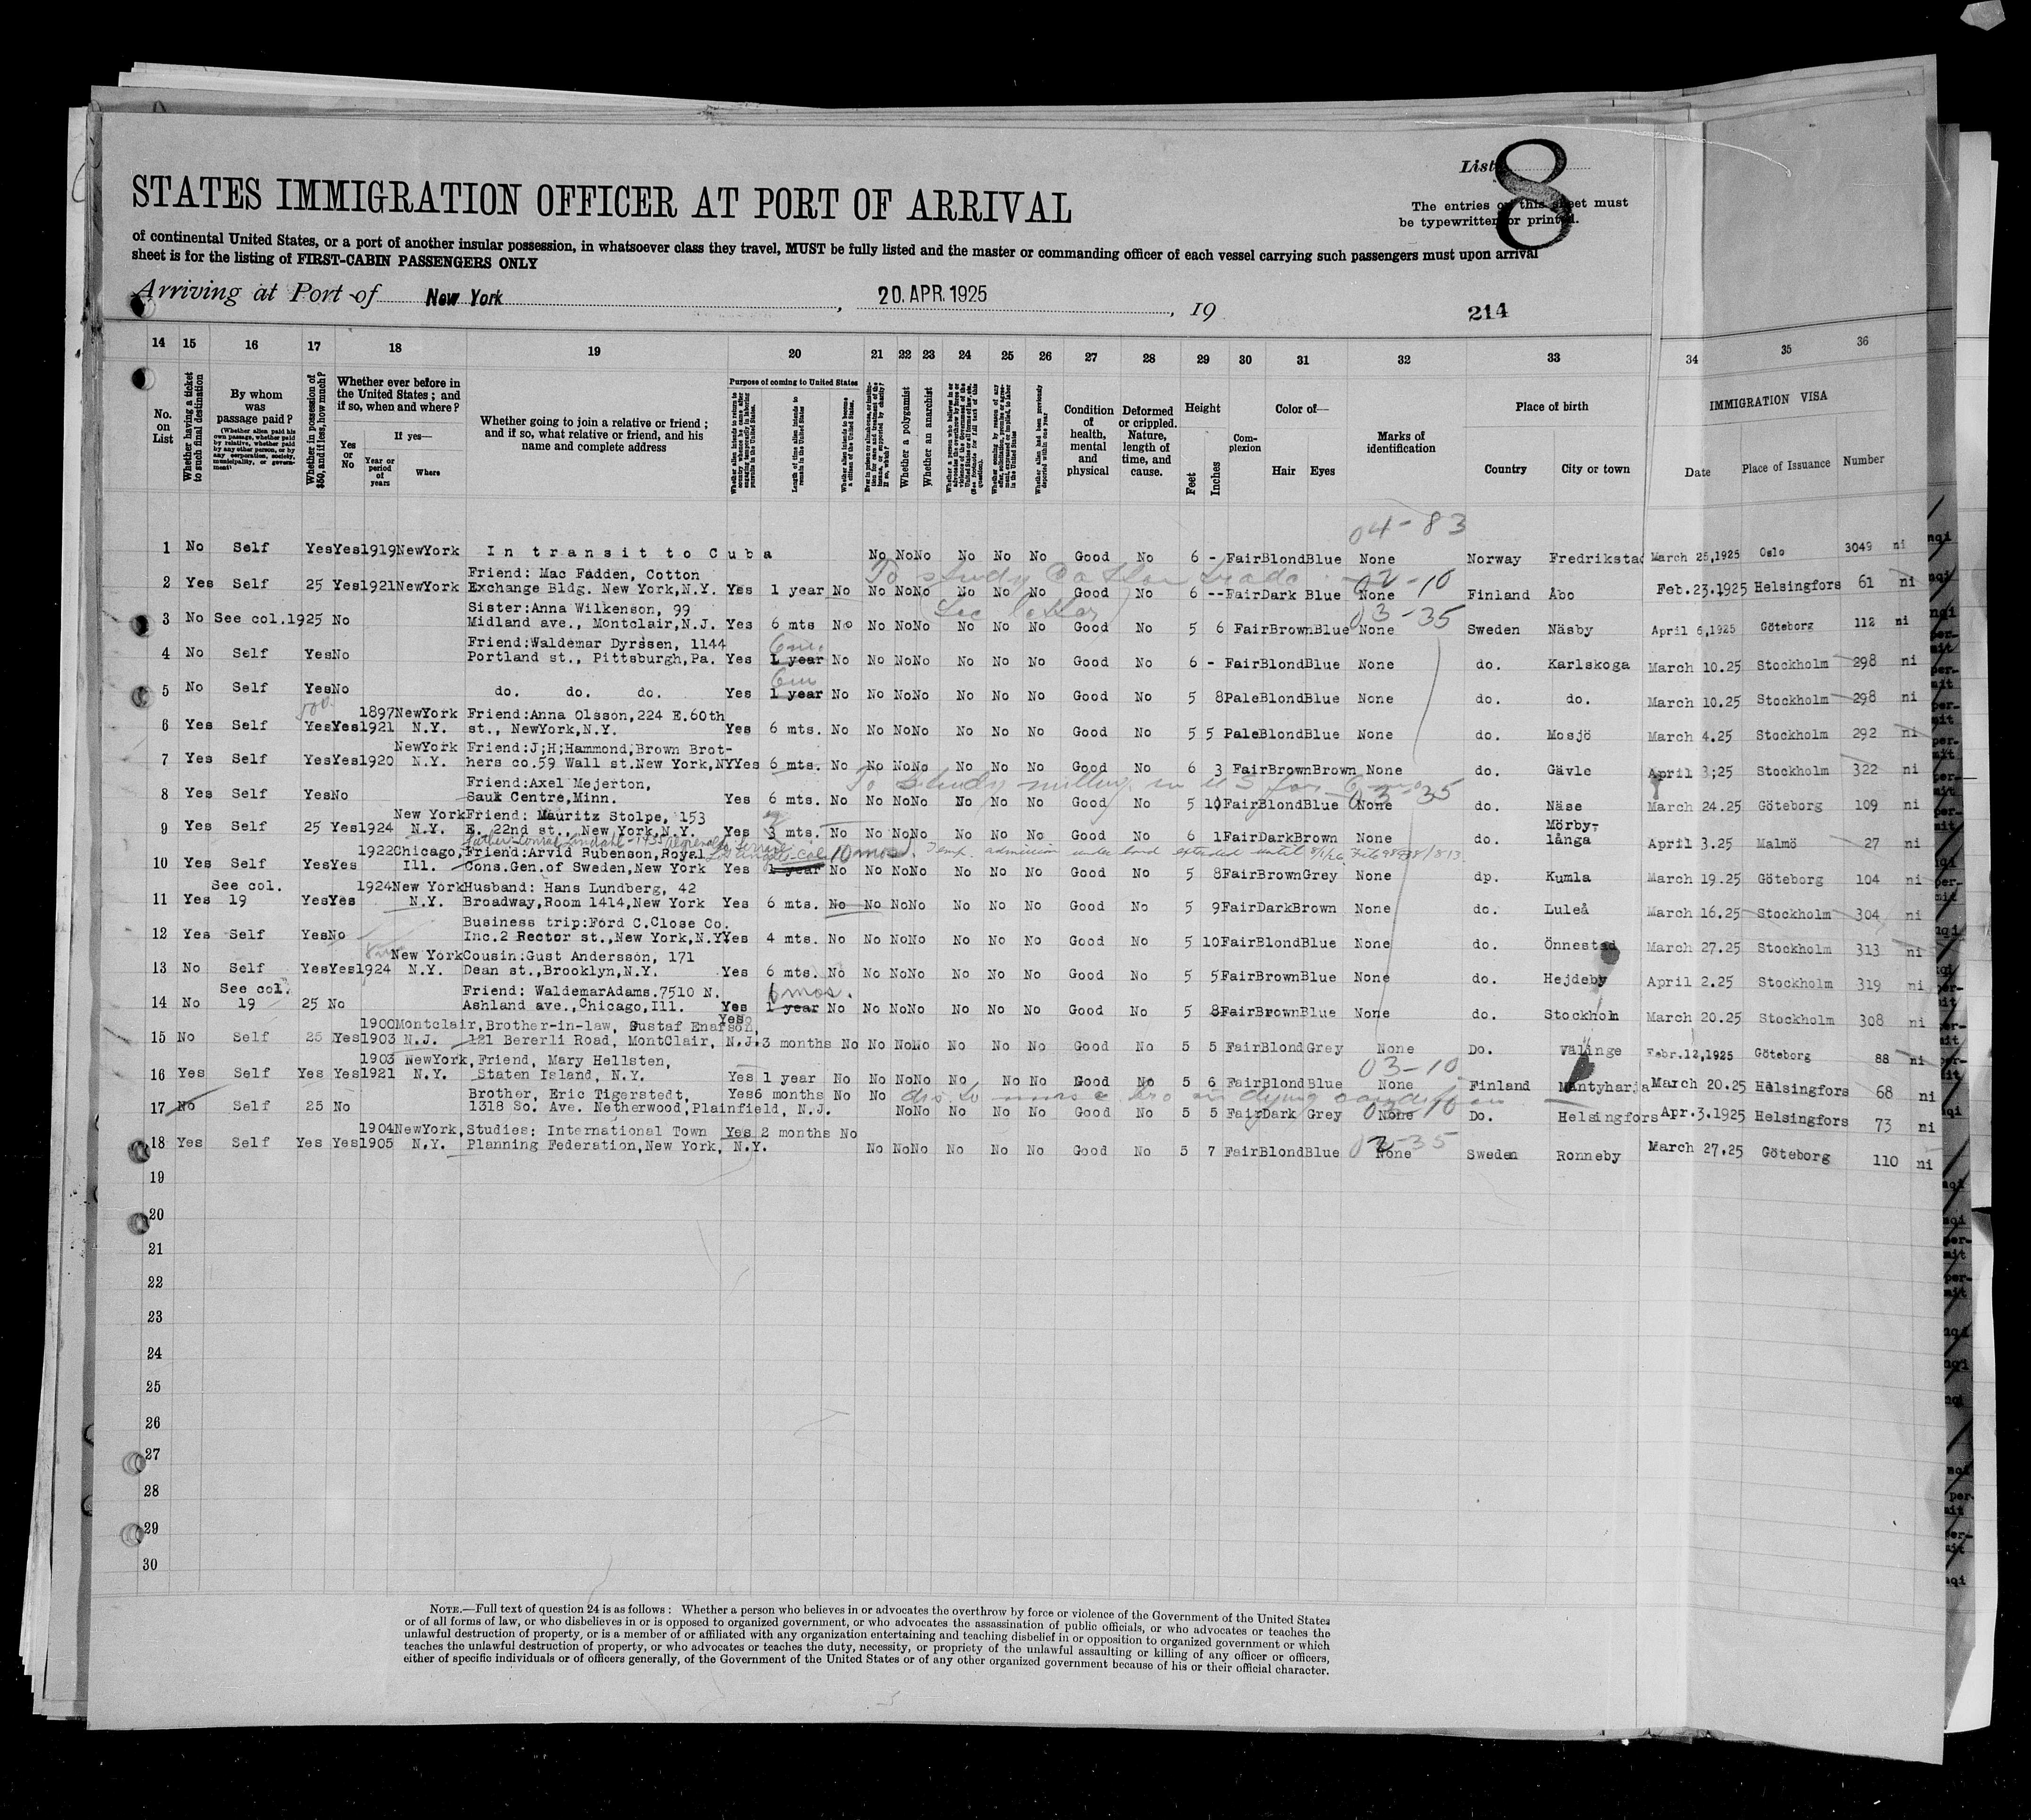 List
8
STATES IMMIGRATION OFFICER AT PORT OF ARRIVAL
The entries on this sheet must
be typewritten or printed.
of continental United States, or a port of another insular possession, in whatsoever class they travel, MUST be fully listed and the master or commanding officer of each vessel carrying such passengers must upon arrival
sheet is for the listing of FIRST-CABIN PASSENGERS ONLY
Arriving at Port of New York, 20. APR. 1925, 19
214
14 15 16 17 18 19 20 21 22 23 24 25 26 27 28 29 30 31 32 33 34 35 36
No. on List
Whether having a ticket to such final destination
By whom was passage paid?
(Whether alien paid his own passage, whether paid by relative, whether paid by any other person, or by any corporation, society, municipality, or government)
Whether in possession of $50, and if less, how much?
Whether ever before in the United States; and if so, when and where?
Yes or No
If yes—
Year or period of years
Where
Whether going to join a relative or friend; and if so, what relative or friend, and his name and complete address
Purpose of coming to United States
Length of time alien intends to remain in the United States
Whether alien intends to become a citizen of the United States.
Whether a polygamist
Whether an anarchist
Condition of health, mental and physical
Deformed or crippled. Nature, length of time, and cause.
Height
Feet Inches
Complexion
Color of—
Hair Eyes
Marks of identification
Place of birth
Country City or town
IMMIGRATION VISA
Date Place of Issuance Number
04-83
1 No Self Yes Yes 1919 NewYork In transit to Cuba No No No No No No Good No 6 - Fair Blond Blue None Norway Fredrikstad March 25,1925 Oslo 3049 ni
To study Cotton trade 02-10
2 Yes Self 25 Yes 1921 NewYork Friend: Mac Fadden, Cotton
Exchange Bldg. New York,N.Y. Yes 1 year No No No No No No No Good No 6 -- Fair Dark Blue None Finland Åbo Feb.23.1925 Helsingfors 61 ni
See letter 03-35
3 No See col.19 25 No Sister:Anna Wilkenson, 99
Midland ave., Montclair,N.J. Yes 6 mts No No No No No No No Good No 5 6 Fair Brown Blue None Sweden Näsby April 6,1925 Göteborg 112 ni
4 No Self Yes No Friend:Waldemar Dyrssen, 1144
Portland st., Pittsburgh,Pa. Yes 1 year No No No No No No No Good No 6 - Fair Blond Blue None do. Karlskoga March 10.25 Stockholm 298 ni
5 No Self Yes No do. do. do. Yes 1 year No No No No No No No Good No 5 8 Pale Blond Blue None do. do. March 10.25 Stockholm 298 ni
500
6 Yes Self Yes Yes 1897 NewYork 1921 N.Y. Friend:Anna Olsson,224 E.60th
st., NewYork,N.Y. Yes 6 mts. No No No No No No No Good No 5 5 Pale Blond Blue None do. Mosjö March 4.25 Stockholm 292 ni
7 Yes Self Yes Yes 1920 NewYork N.Y. Friend:J;H;Hammond,Brown Brot-
hers co.59 Wall st.New York,NY Yes 6 mts. No No No No No No No Good No 6 3 Fair Brown Brown None do. Gävle April 3;25 Stockholm 322 ni
03-35
8 Yes Self Yes No Friend:Axel Mejerton,
Sauk Centre,Minn. Yes 6 mts. No No No No No No No Good No 5 10 Fair Blond Blue None do. Näse March 24.25 Göteborg 109 ni
9 Yes Self 25 Yes 1924 New York N.Y. Friend: Mauritz Stolpe, 153
E. 22nd st., New York,N.Y. Yes 3 mts. No No No No No No No Good No 6 1 Fair Dark Brown None do. Mörby-
långa April 3.25 Malmö 27 ni
10 mos. Temp. admission under bond extended until
10 Yes Self Yes Yes 1922 Chicago, Ill. Friend:Arvid Rubenson,Royal
Cons.Gen.of Sweden,New York Yes 1 year No No No No No No No Good No 5 8 Fair Brown Grey None dp. Kumla March 19.25 Göteborg 104 ni
11 Yes See col. 19 Yes Yes 1924 New York N.Y. Husband: Hans Lundberg, 42
Broadway,Room 1414,New York Yes 6 mts. No No No No No No No Good No 5 9 Fair Dark Brown None do. Luleå March 16.25 Stockholm 304 ni
12 Yes Self Yes No Business trip:Ford C.Close Co.
Inc.2 Rector st.,New York,N.Y. Yes 4 mts. No No No No No No No Good No 5 10 Fair Blond Blue None do. Önnestad March 27.25 Stockholm 313 ni
13 No Self Yes Yes 1924 New York N.Y. Cousin:Gust Andersson, 171
Dean st.,Brooklyn,N.Y. Yes 6 mts. No No No No No No No Good No 5 5 Fair Brown Blue None do. Hejdeby April 2.25 Stockholm 319 ni
6 mos.
14 No See col. 19 25 No Friend: WaldemarAdams.7510 N.
Ashland ave.,Chicago,Ill. Yes 1 year No No No No No No No Good No 5 8 Fair Brown Blue None do. Stockholm March 20.25 Stockholm 308 ni
15 No Self 25 Yes 1900 1903 Montclair, N.J. Brother-in-law, Gustaf Enarson, Yes
121 Bererli Road, MontClair, N.J. 3 months No No No No No No No Good No 5 5 Fair Blond Grey None Do. Välinge Febr.12,1925 Göteborg 88 ni
03-10
16 Yes Self Yes Yes 1903 1921 NewYork, N.Y. Friend, Mary Hellsten,
Staten Island, N.Y. Yes 1 year No No No No No No No Good No 5 6 Fair Blond Blue None Finland Mäntyharja March 20.25 Helsingfors 68 ni
17 No Self 25 No Brother, Eric Tigerstedt, Yes 6 months No No
1318 So. Ave. Netherwood,Plainfield, N.J. No No No No No Good No 5 5 Fair Dark Grey None Do. Helsingfors Apr.3.1925 Helsingfors 73 ni
02-35
18 Yes Self Yes Yes 1904 1905 NewYork, N.Y. Studies; International Town Yes 2 months No
Planning Federation,New York, N.Y. No No No No No No Good No 5 7 Fair Blond Blue None Sweden Ronneby March 27.25 Göteborg 110 ni
19
20
21
22
23
24
25
26
27
28
29
30
NOTE.—Full text of question 24 is as follows: Whether a person who believes in or advocates the overthrow by force or violence of the Government of the United States
or of all forms of law, or who disbelieves in or is opposed to organized government, or who advocates the assassination of public officials, or who advocates or teaches the
unlawful destruction of property, or is a member of or affiliated with any organization entertaining and teaching disbelief in or opposition to organized government or which
teaches the unlawful destruction of property, or who advocates or teaches the duty, necessity, or propriety of the unlawful assaulting or killing of any officer or officers,
either of specific individuals or of officers generally, of the Government of the United States or of any other organized government because of his or their official character.